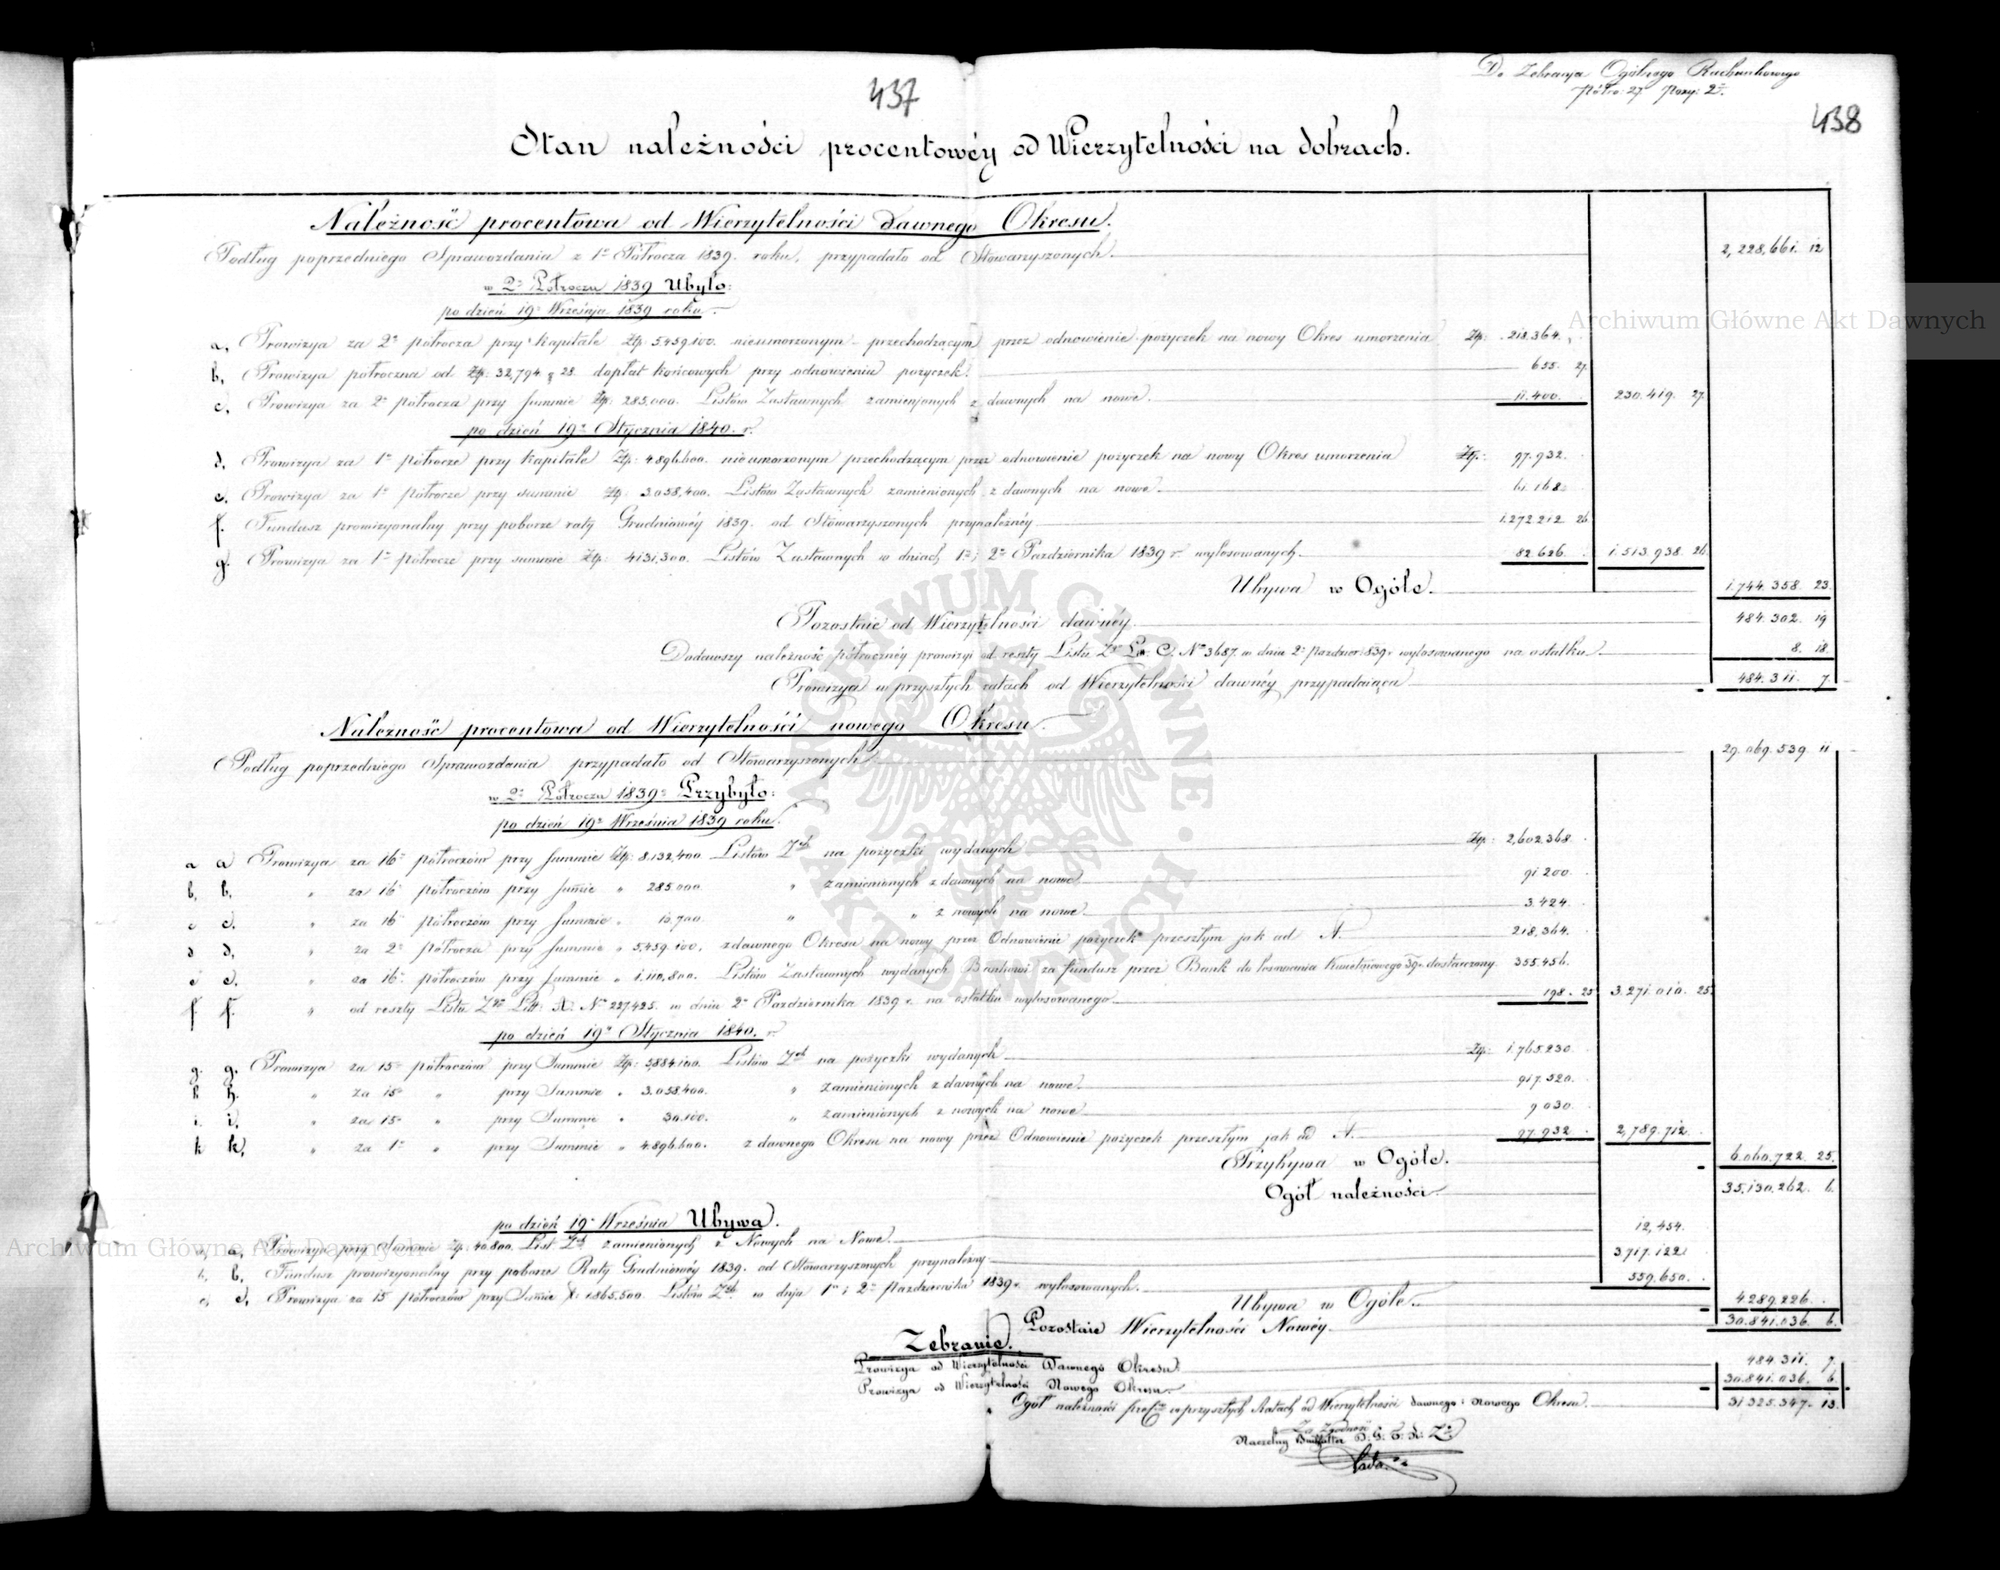 437
Do Zebrania Ogólnego Rachunkowego
Półro: 27 Pozy: 2.
438
Stan należności procentowéy od Wierzytelności na dobrach.
Należność procentowa od Wierzytelności dawnego Okresu.
Podług poprzedniego Sprawozdania z 1º Półrocza 1839. roku, przypadało od Stowarzyszonych. 2,228,661. 12
w 2m Półroczu 1839 Ubyło:
po dzień 19º Września 1839 roku
a, Prowizya za 2º półrocza przy Kapitale Złp: 5,459,100. nieumorzonym przechodzącym przez odnowienie pożyczek na nowy Okres umorzenia Złp: 218,364.
b, Prowizya półroczna od Złp: 32,794 g 28 dopłat końcowych przy odnowieniu pożyczek. 655. 27.
c, Prowizya za 2º półrocza przy Summie Złp: 285,000. Listów Zastawnych zamienionych z dawnych na nowe. 11.400. 230.419. 27.
po dzień 19º Stycznia 1840. r.
d, Prowizya za 1º półrocze przy kapitale Złp: 4.896.600. nieumorzonym przechodzącym przez odnowienie pożyczek na nowy Okres umorzenia Złp: 97.932.
e. Prowizya za 1º półrocze przy summie Złp: 3.058,400. Listów Zastawnych zamienionych z dawnych na nowe. 61.168.
f. Fundusz prowizyonalny przy poborze raty Grudniowéy 1839. od Stowarzyszonych przynależnéy 1.272 212 26
g. Prowizya za 1º półrocze przy summie Złp: 4131,300. Listów Zastawnych w dniach 1º i 2º Pazdziernika 1839 r. wylosowanych. 82.626. 1.513.938. 26.
Ubywa w Ogóle. 1.744.358. 23.
Pozostaie od Wierzytelności dawnéy. 484.302. 19
Dodawszy należność półrocznéy prowizyi od reszty Listu Zgo Lit: C. No 3687. w dniu 2º Pazdzier: 1839 r wylosowanego na ostatku. 8. 18.
Prowizya w przyszłych ratach od Wierzytelności dawnéy przypadaiąca 484.311. 7.
Należność procentowa od Wierzytelności nowego Okresu.
Podług poprzedniego Sprawozdania przypadało od Stowarzyszonych 29.069.539. 11
w 2m Półroczu 1839 Przybyło:
po dzień 19º Września 1839 roku.
a a Prowizya za 16º półroczów przy Summie Złp: 8.132,400 Listów Zch na pożyczki wydanych Złp: 2,602,368.
b, b, " za 16 półroczów przy Summie " 285.000. " zamienionych z dawnych na nowe 91.200.
c c. " za 16 półroczów przy Summie " 10,700. " " z nowych na nowe. 3.424.
d d, " za 2º półrocza przy Summie " 5,459.100. z dawnego Okresu na nowy przez Odnowienie pożyczek przeszłym jak ad A. 218,364.
e e. " za 16º półroczów przy Summie " 1.110,800. Listów Zastawnych wydanych Bankowi za fundusz przez Bank do losowania dostarczony. 355.456.
f. f. " od reszty Listu Zgo Litt: A. No 227,425. w dniu 2º Pazdziernika 1839 r. na ostatku wylosowanego 198. 25 3.271.010. 25.
po dzień 19º Stycznia 1840. r.
g. g. Prowizya za 15º półroczów przy Summie Złp: 5884.100. Listów Zch na pożyczki wydanych Złp: 1.765.230.
h h. " za 15º " przy Summie " 3.058.400. " zamienionych z dawnych na nowe 917.520.
i. i. " za 15º " przy Summie " 30.100. " zamienionych z nowych na nowe 9 030.
k k. " za 1º " przy Summie " 4.896.600. z dawnego Okresu na nowy przez Odnowienie pożyczek przeszłym jak ad A. 97.932 2,789.712.
Przybywa w Ogóle. 6.060.722. 25.
Ogół należności. 35.130.262. 6.
po dzień 19º Września Ubywa.
a, a, Prowizya przy Summie Złp. 40.800. List. Zch zamienionych z Nowych na Nowe. 12,454.
b, b, Fundusz prowizyonalny przy poborze Raty Grudniowéy 1839. od Stowarzyszonych przynależny 3.717.122
c, c, Prowizya za 15 półroczów przy Summie 1.865.500. Listów Zch. w dniu 1m i 2m Pazdziernika 1839 r. wylosowanych. 559,650.
Ubywa w Ogóle. 4.289.226.
Pozostaie Wierzytelności Nowéy. 30.841.036. 6.
Zebranie.
Prowizya od Wierzytelności Dawnego Okresu. 484.311. 7.
Prowizya od Wierzytelności Nowego Okresu. 30.841.036. 6.
Ogół należności w przyszłych Ratach od Wierzytelności dawnego i Nowego Okresu. 31 325.347. 13.
Za Zgodność
Naczelny Buchhalter D. G. T. K. Zo
Archiwum Główne Akt Dawnych
Archiwum Główne Akt Dawnych
ARCHIWUM GŁÓWNE AKT DAWNYCH